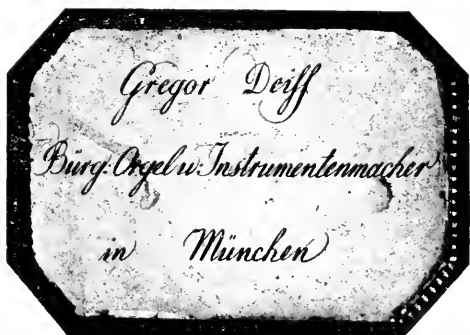 Gregor Deiss
Bürg: Orgel u: Instrumentenmacher
in München